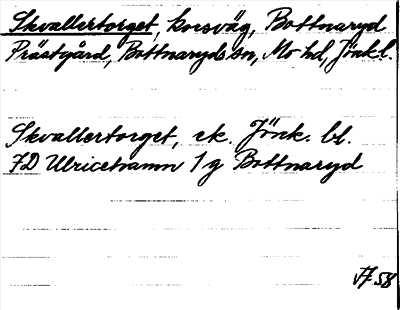 Skvallertorget, korsväg, Bottnaryd
Prästgård, Bottnaryds sn, Mo hd, Jönk l.
Skvallertorget, ek. Jönk. bl.
7D Ulricehamn 1 g Bottnaryd
58